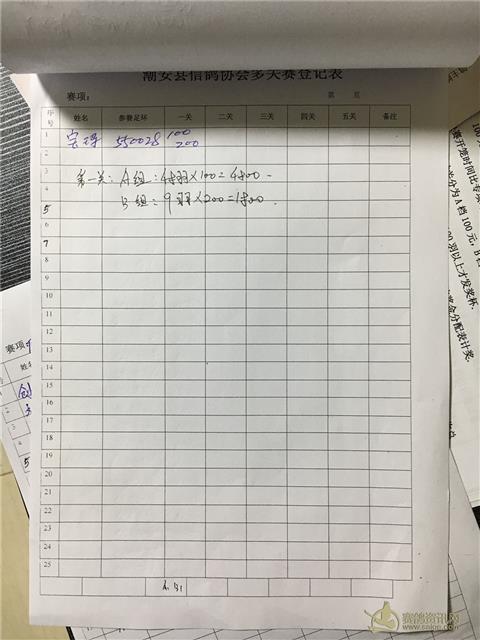 潮安县信鸽协会多关赛登记表
赛项： 第 页
序号 姓名 参赛足环 一关 二关 三关 四关 五关 备注
1 550028 100
2 200
3 第一关：A组：48羽×100=4800
4 B组：9羽×200=1800
5
6
7
8
9
10
11
12
13
14
15
16
17
18
19
20
21
22
23
24
25
A. B1
赛项
姓名
1
2
3
4
5
赛开笼时间比专项
分为A档100元，B档
00羽以上才发奖杯.
奖金分配表计奖.
赛鸽资讯网
www.saige.com